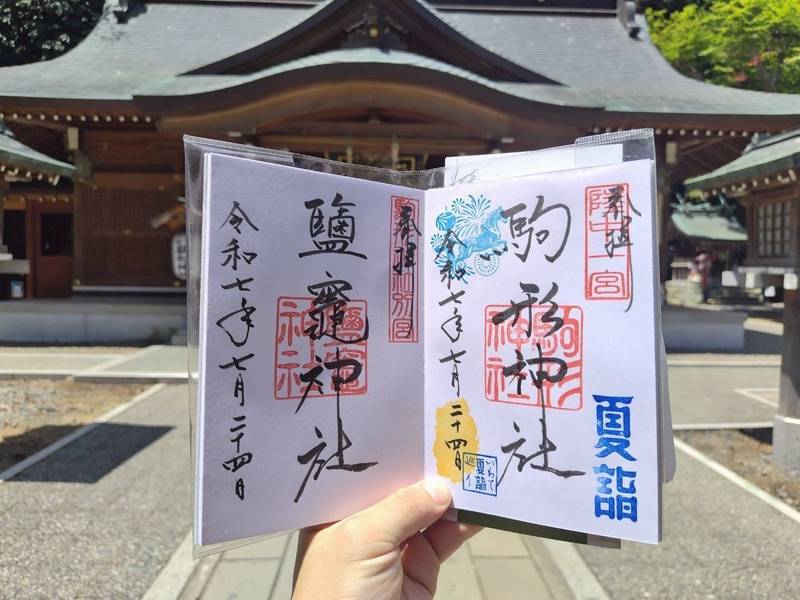 奉拝
陸中一宮
夏詣
駒形神社
駒形
神社
令和七年七月二十四日
いわて
夏詣
巡り
奉拝
鹽竈神社
鹽竈
神社
令和七年七月二十四日